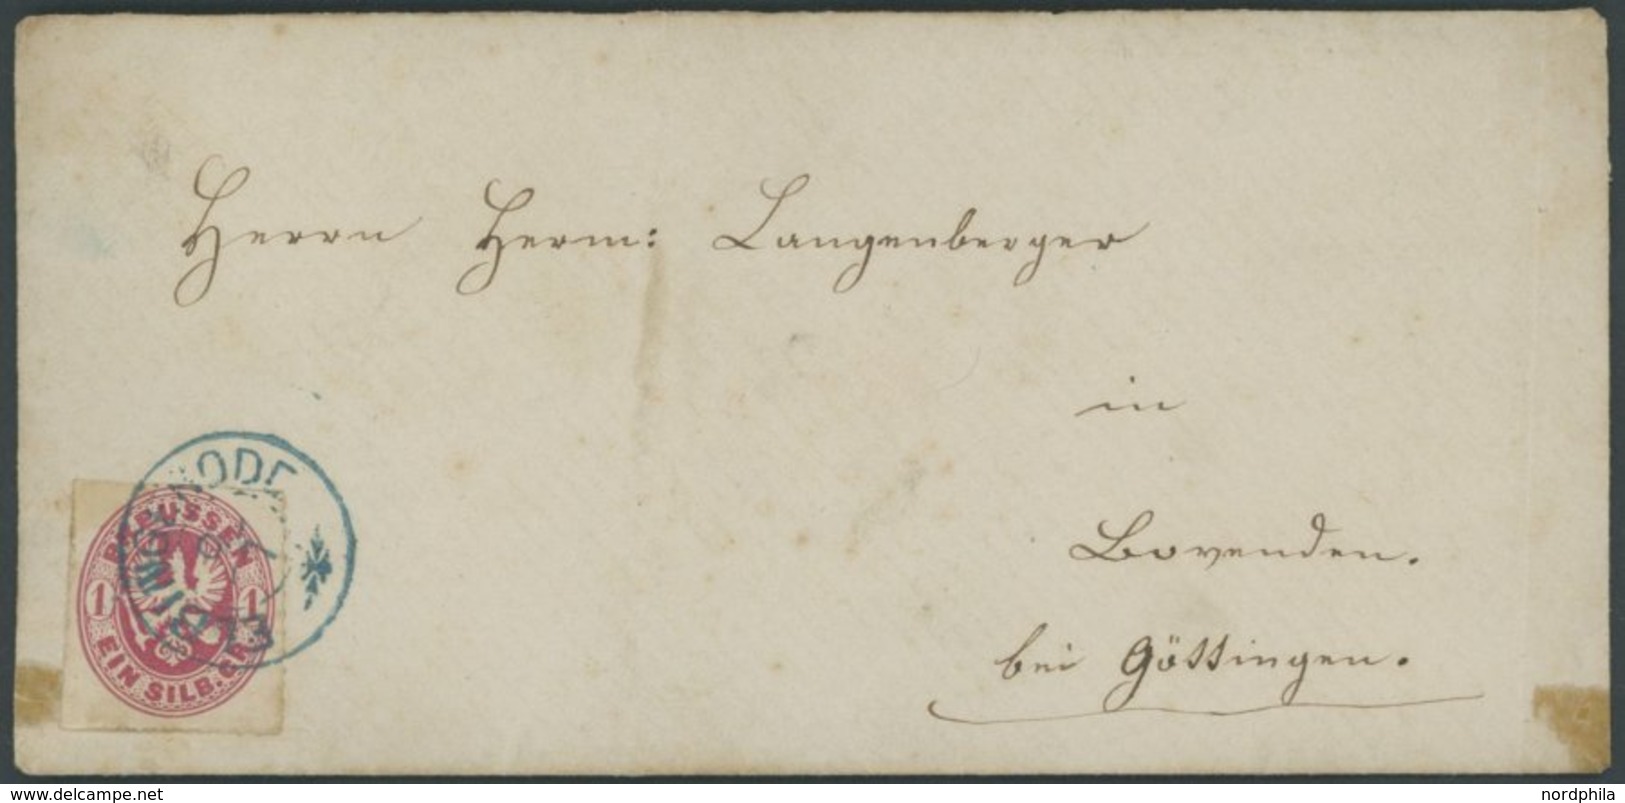 Herrn Herm: Langenberger
in
Bovenden.
bei Göttingen.
PREUSSEN
1 1
EIN SILB. GR.
www.delcampe.net
nordphila